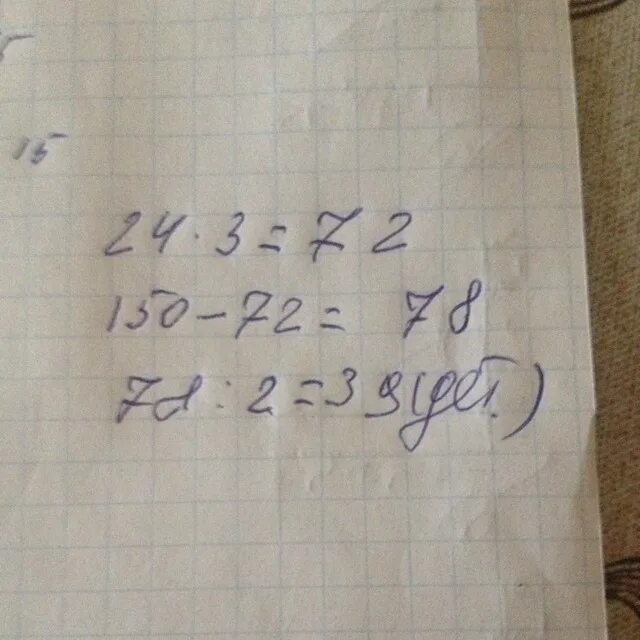 15
24 · 3 = 72
150 - 72 = 78
78 : 2 = 39 (дет.)